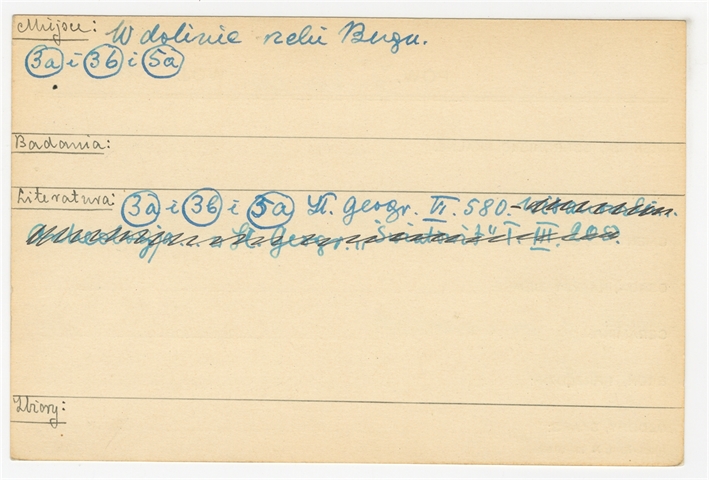 Miejsce: W dolinie rzeki Bugu.
3a i 3b i 5a
Badania:
Literatura: 3a i 3b i 5a Sł. Geogr. VI. 580.
Sł. Geogr. III.
Zbiory: